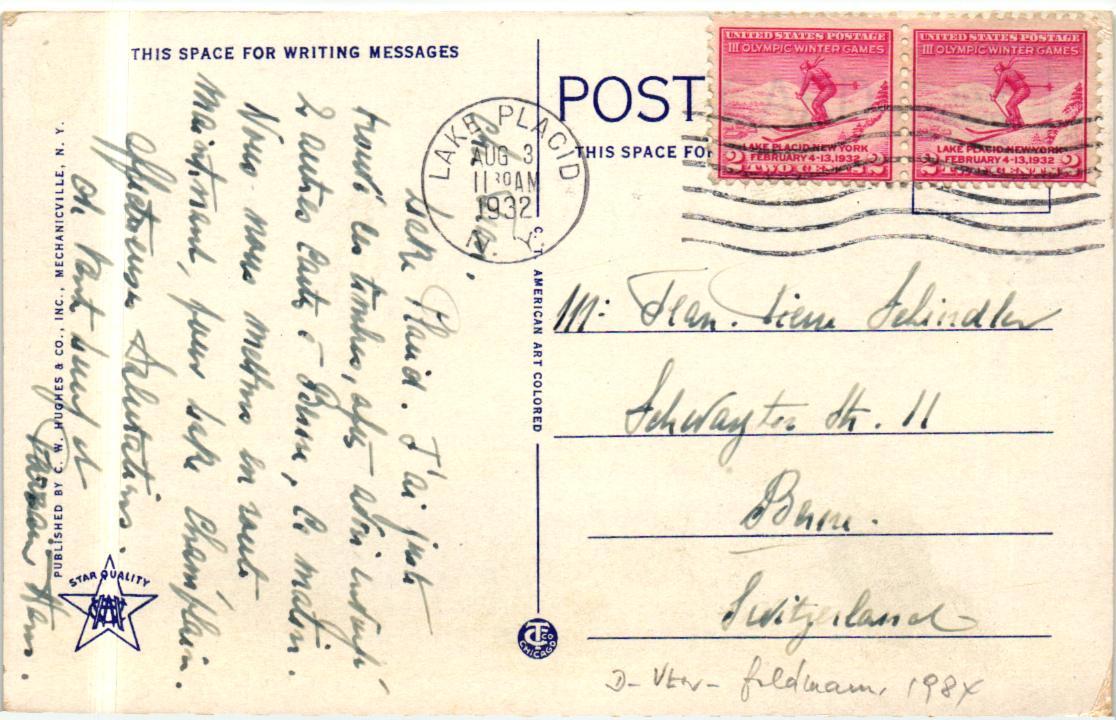 THIS SPACE FOR WRITING MESSAGES
Lake Placid. J'ai juste
trouvé les timbres, après avoir envoyé
2 autres cartes à Berne, ce matin.
Nous nous mettons en route
maintenant, pour Lake Champlain.
Affectueuses Salutations.
PUBLISHED BY C. W. HUGHES & CO., INC., MECHANICVILLE, N. Y.
STAR QUALITY
C. T. AMERICAN ART COLORED
CT CO
CHICAGO
POST
THIS SPACE FO
LAKE PLACID
AUG 3
11 30 AM
1932
N. Y.
UNITED STATES POSTAGE
III OLYMPIC WINTER GAMES
LAKE PLACID, NEW YORK
FEBRUARY 4-13, 1932
2 TWO CENTS 2
UNITED STATES POSTAGE
III OLYMPIC WINTER GAMES
LAKE PLACID, NEW YORK
FEBRUARY 4-13, 1932
2 TWO CENTS 2
Mr. Jean-Pierre Schindler
Str. 11
Berne.
Switzerland
Feldmann, 1984